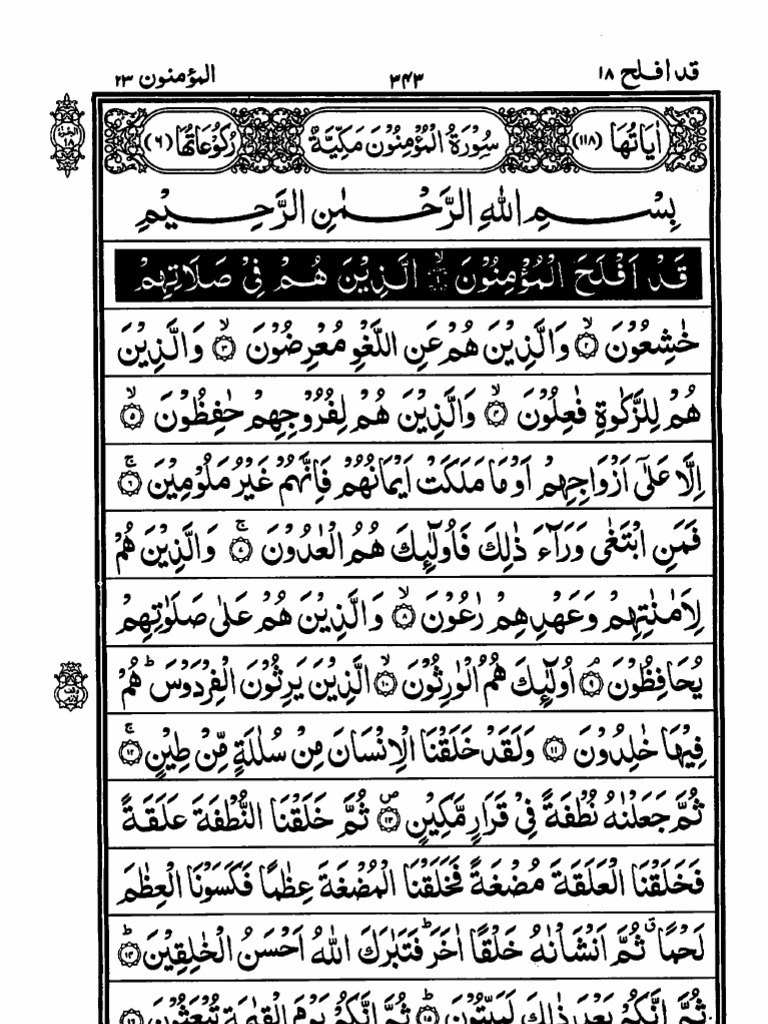 قد افلح ١٨ ٣٤٣ المؤمنون ٢٣
اٰيَاتُهَا (١١٨) سُوْرَةُ الْمُؤْمِنُوْنَ مَكِّيَّةٌ رُكُوْعَاتُهَا (٦)
الجزء ١٨
بِسْمِ اللهِ الرَّحْمٰنِ الرَّحِيْمِ
قَدْ اَفْلَحَ الْمُؤْمِنُوْنَ ۙ﴿١﴾ الَّذِيْنَ هُمْ فِيْ صَلَاتِهِمْ
خٰشِعُوْنَ ۙ﴿٢﴾ وَالَّذِيْنَ هُمْ عَنِ اللَّغْوِ مُعْرِضُوْنَ ۙ﴿٣﴾ وَالَّذِيْنَ
هُمْ لِلزَّكٰوةِ فٰعِلُوْنَ ۙ﴿٤﴾ وَالَّذِيْنَ هُمْ لِفُرُوْجِهِمْ حٰفِظُوْنَ ۙ﴿٥﴾
اِلَّا عَلٰۤى اَزْوَاجِهِمْ اَوْ مَا مَلَكَتْ اَيْمَانُهُمْ فَاِنَّهُمْ غَيْرُ مَلُوْمِيْنَ ۚ﴿٦﴾
فَمَنِ ابْتَغٰى وَرَآءَ ذٰلِكَ فَاُولٰٓئِكَ هُمُ الْعٰدُوْنَ ۚ﴿٧﴾ وَالَّذِيْنَ هُمْ
لِاَمٰنٰتِهِمْ وَعَهْدِهِمْ رٰعُوْنَ ۙ﴿٨﴾ وَالَّذِيْنَ هُمْ عَلٰى صَلَوٰتِهِمْ
يُحَافِظُوْنَ ۘ﴿٩﴾ اُولٰٓئِكَ هُمُ الْوٰرِثُوْنَ ۙ﴿١٠﴾ الَّذِيْنَ يَرِثُوْنَ الْفِرْدَوْسَ ؕ هُمْ
وقف لازم
فِيْهَا خٰلِدُوْنَ ﴿١١﴾ وَلَقَدْ خَلَقْنَا الْاِنْسَانَ مِنْ سُلٰلَةٍ مِّنْ طِيْنٍ ۚ﴿١٢﴾
ثُمَّ جَعَلْنٰهُ نُطْفَةً فِيْ قَرَارٍ مَّكِيْنٍ ۪﴿١٣﴾ ثُمَّ خَلَقْنَا النُّطْفَةَ عَلَقَةً
فَخَلَقْنَا الْعَلَقَةَ مُضْغَةً فَخَلَقْنَا الْمُضْغَةَ عِظٰمًا فَكَسَوْنَا الْعِظٰمَ
لَحْمًا ۗ ثُمَّ اَنْشَاْنٰهُ خَلْقًا اٰخَرَ ؕ فَتَبٰرَكَ اللهُ اَحْسَنُ الْخٰلِقِيْنَ ؕ﴿١٤﴾
ثُمَّ اِنَّكُمْ بَعْدَ ذٰلِكَ لَمَيِّتُوْنَ ؕ﴿١٥﴾ ثُمَّ اِنَّكُمْ يَوْمَ الْقِيٰمَةِ تُبْعَثُوْنَ ﴿١٦﴾